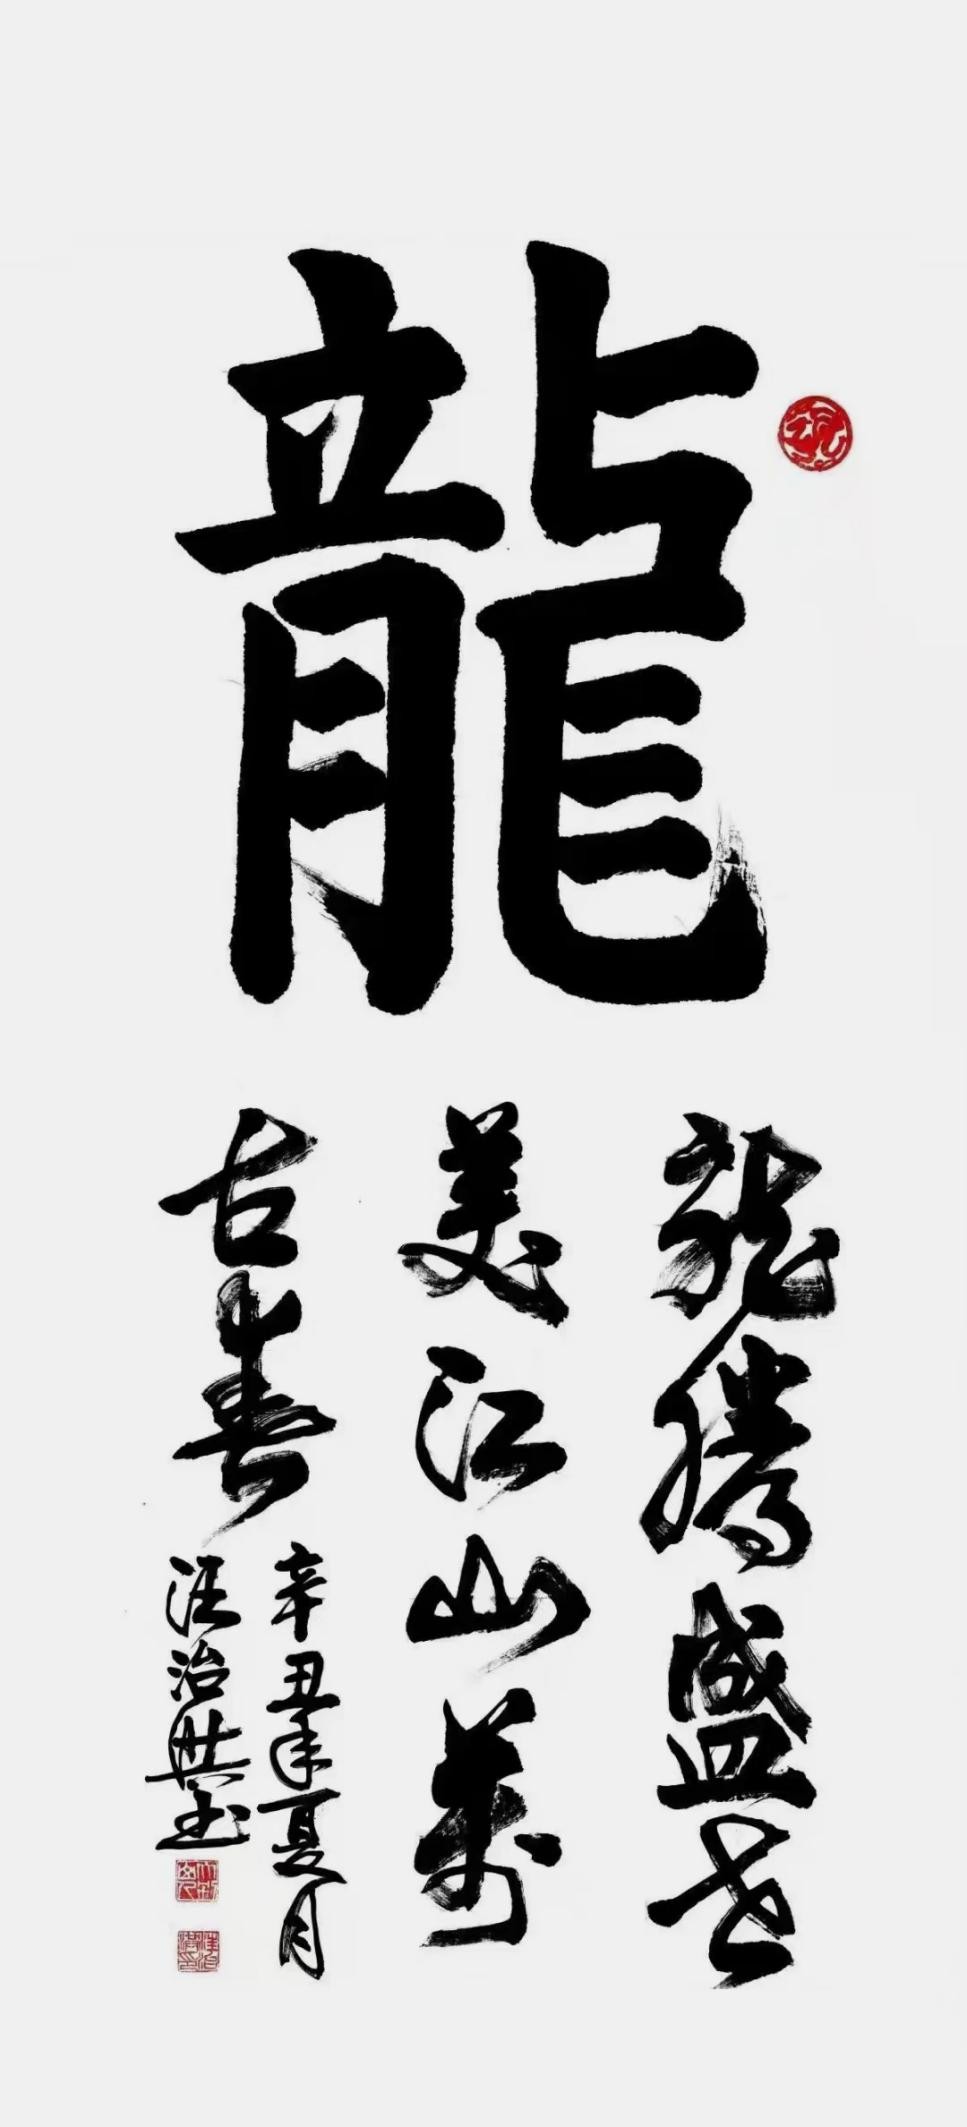 龍
龍騰盛世
美江山萬
古春
辛丑年夏月
汪治書